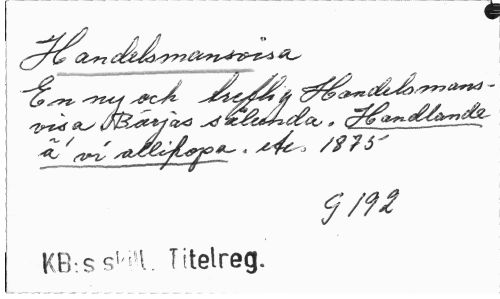 Handelsmansvisa
En ny och treflig Handelsmans-
visa Börjas sålunda. Handlande
ä' vi allihopa. etc. 1875
G 192
KB:s skill. Titelreg.